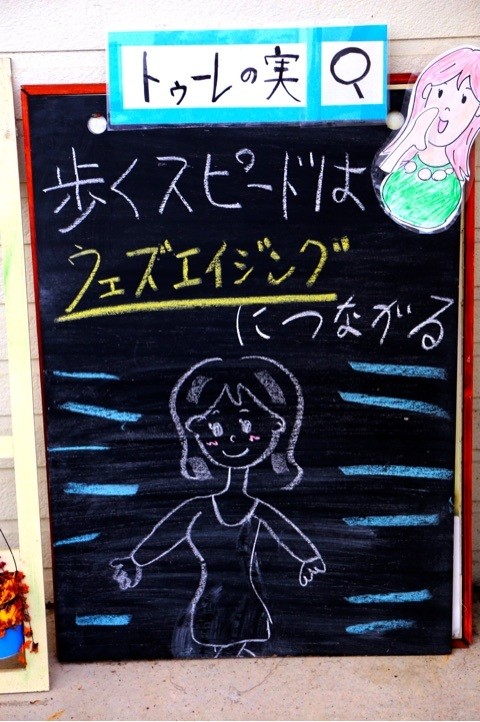 トゥーレの実
歩くスピードは
ウェズエイジング
につながる